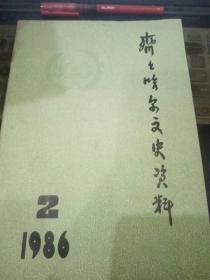 齐齐哈尔文史资料
2
1986